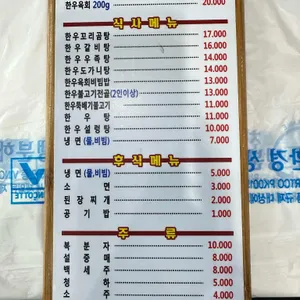 한우육회 200g 20.000
식사메뉴
한우꼬리곰탕 17.000
한우갈비탕 16.000
한우우족탕 14.000
한우도가니탕 14.000
한우육회비빔밥 13.000
한우불고기전골(2인이상) 13.000
한우뚝배기불고기 11.000
한우탕 11.000
한우설렁탕 10.000
냉면(물,비빔) 7.000
후식메뉴
냉면(물,비빔) 5.000
소면 3.000
된장찌개 2.000
공기밥 1.000
주류
복분자 10.000
설중매 8.000
백세주 8.000
청하 5.000
소주 4.000